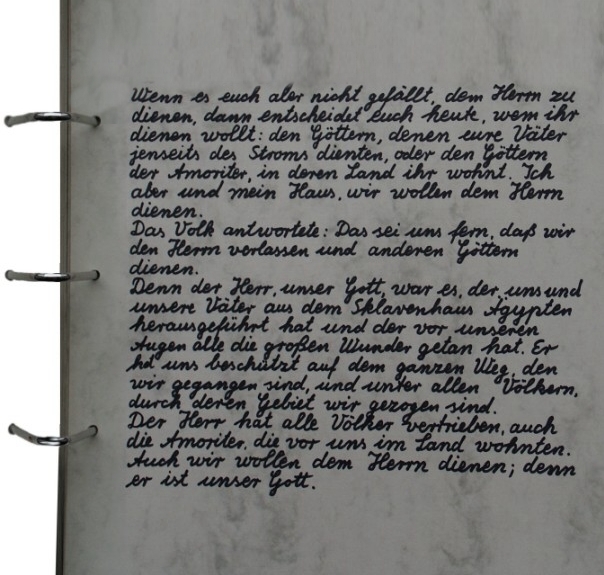 Wenn es euch aber nicht gefällt, dem Herrn zu
dienen, dann entscheidet euch heute, wem ihr
dienen wollt: den Göttern, denen eure Väter
jenseits des Stroms dienten, oder den Göttern
der Amoriter, in deren Land ihr wohnt. Ich
aber und mein Haus, wir wollen dem Herrn
dienen.
Das Volk antwortete: Das sei uns fern, daß wir
den Herrn verlassen und anderen Göttern
dienen.
Denn der Herr, unser Gott, war es, der uns und
unsere Väter aus dem Sklavenhaus Ägypten
herausgeführt hat und der vor unseren
Augen alle die großen Wunder getan hat. Er
hat uns beschützt auf dem ganzen Weg, den
wir gegangen sind, und unter allen Völkern,
durch deren Gebiet wir gezogen sind.
Der Herr hat alle Völker vertrieben, auch
die Amoriter, die vor uns im Land wohnten.
Auch wir wollen dem Herrn dienen; denn
er ist unser Gott.